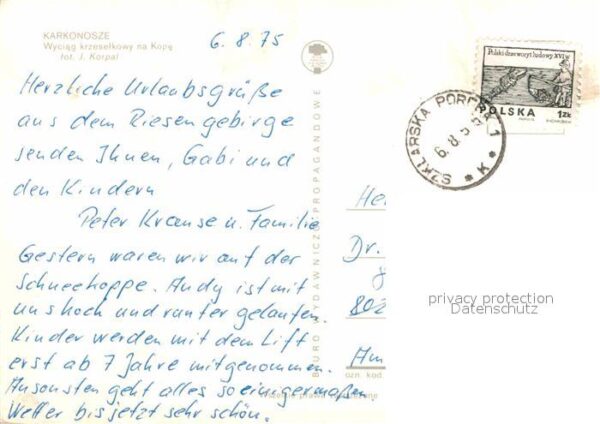 KARKONOSZE
Wyciąg krzesełkowy na Kopę
fot. J. Korpal
6.8.75
Herzliche Urlaubsgrüße
aus dem Riesengebirge
senden Ihnen, Gabi und
den Kindern
Peter Krause u. Familie
Gestern waren wir auf der
Schneekoppe. Andy ist mit
uns hoch und runter gelaufen.
Kinder werden mit dem Lift
erst ab 7 Jahre mitgenommen.
Ansonsten geht alles so einigermaßen.
Wetter bis jetzt sehr schön.
BIURO WYDAWNICZO PROPAGANDOWE
Polski drzeworyt ludowy XVI w.
POLSKA 1 ZŁ
SZKLARSKA PORĘBA 1
6.8.
* K *
He
Dr.
802
Am
ozn. kod.
privacy protection
Datenschutz